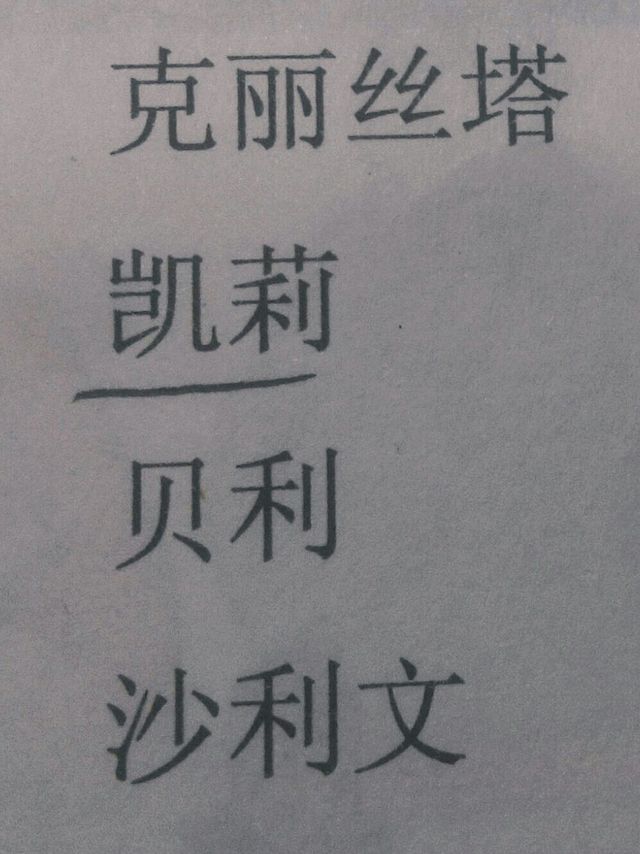 克丽丝塔
凯莉
贝利
沙利文